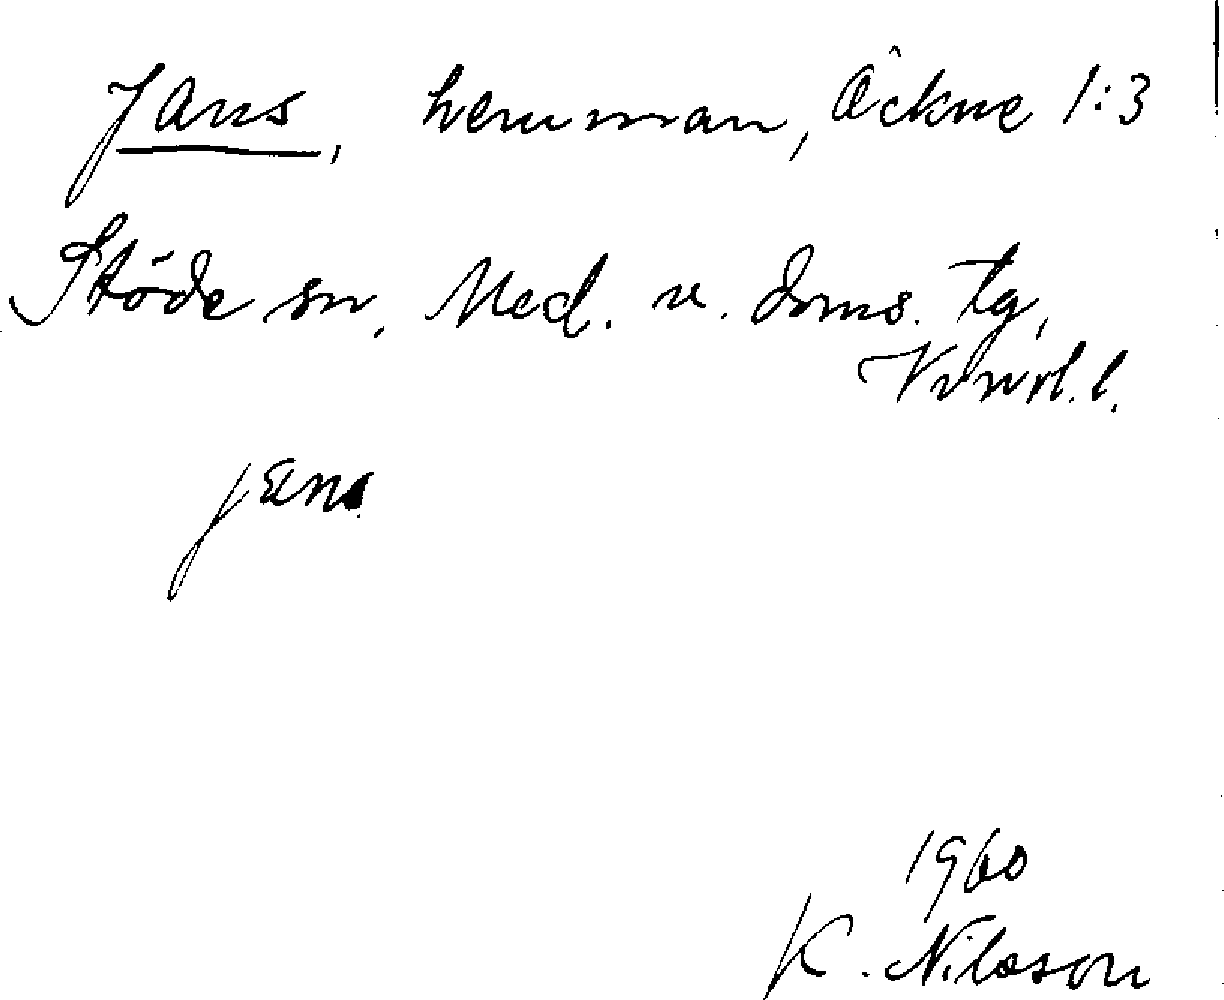 Jans, hemman, Öckne 1:3
Stöde sn, Med. v. doms. tg,
Vnorl. l.
jɛns
1960
K. Nilsson